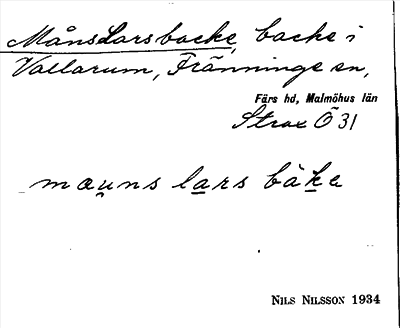 Måns Larsbacke, backe i
Vallarum, Fränninge sn,
Färs hd, Malmöhus län
Strax Ö 31
mau̯ns la̲rs bàk̲e
NILS NILSSON 1934